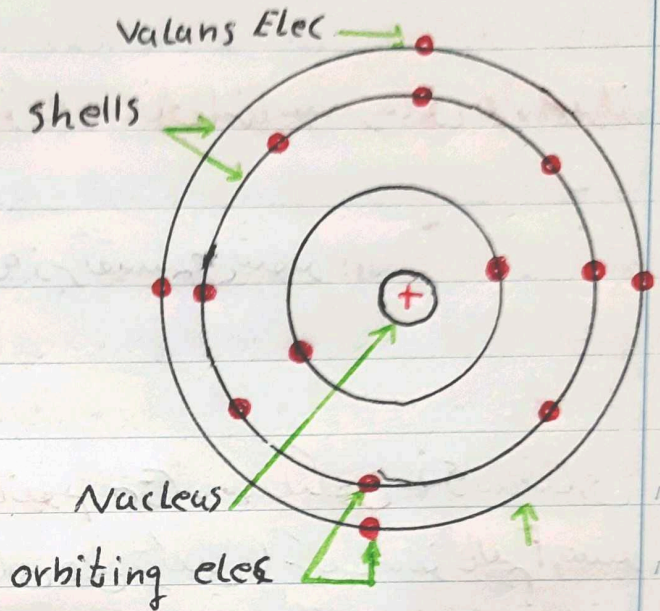 Valans Elec
shells
+
Nucleus
orbiting elec